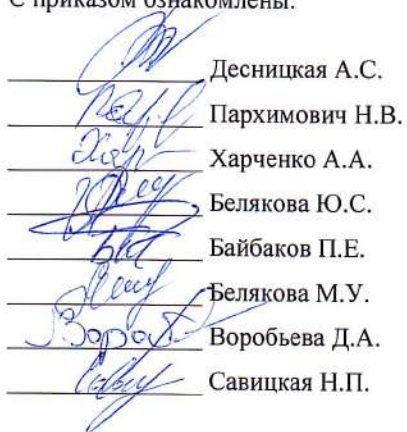 С приказом ознакомлены:
Десницкая А.С.
Пархимович Н.В.
Харченко А.А.
Белякова Ю.С.
Байбаков П.Е.
Белякова М.У.
Воробьева Д.А.
Савицкая Н.П.